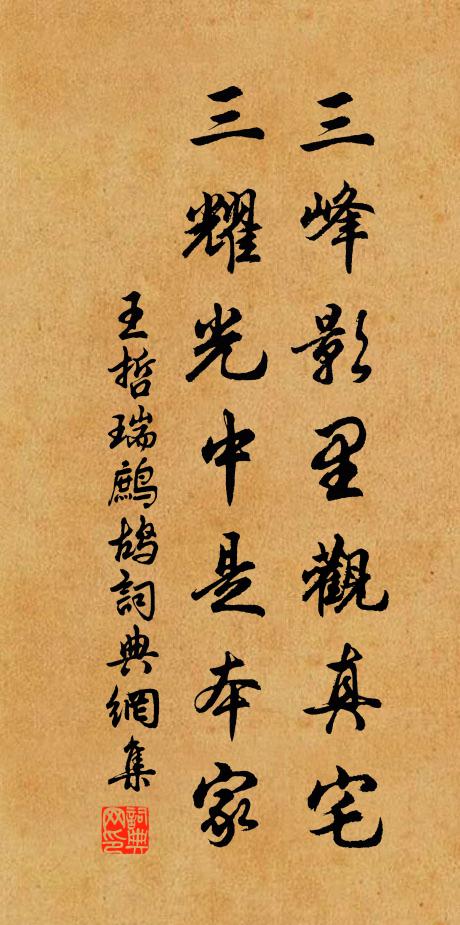 三峰影里觀真宅
三耀光中是本家
王哲瑞鷓鴣詞典網集
詞典网印